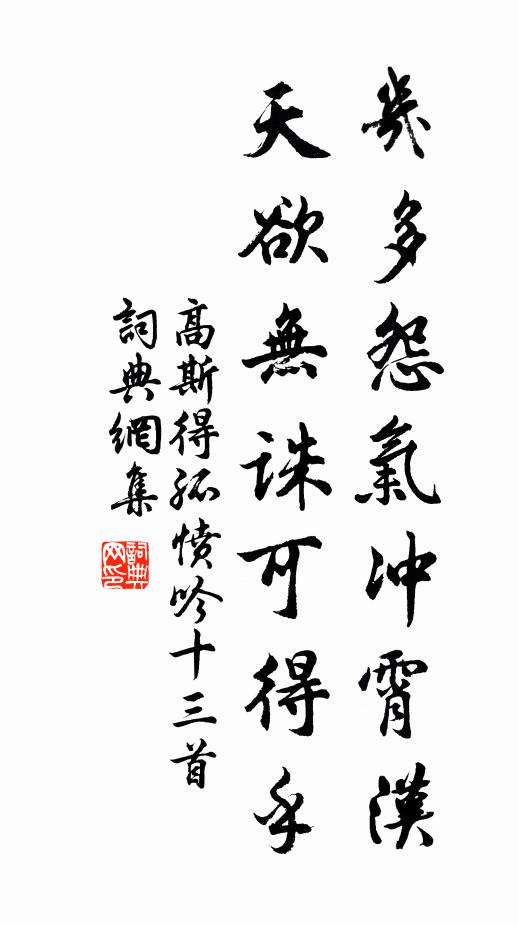 幾多怨氣沖霄漢
天欲無誅可得乎
高斯得孤憤吟十三首
詞典網集
詞典網印